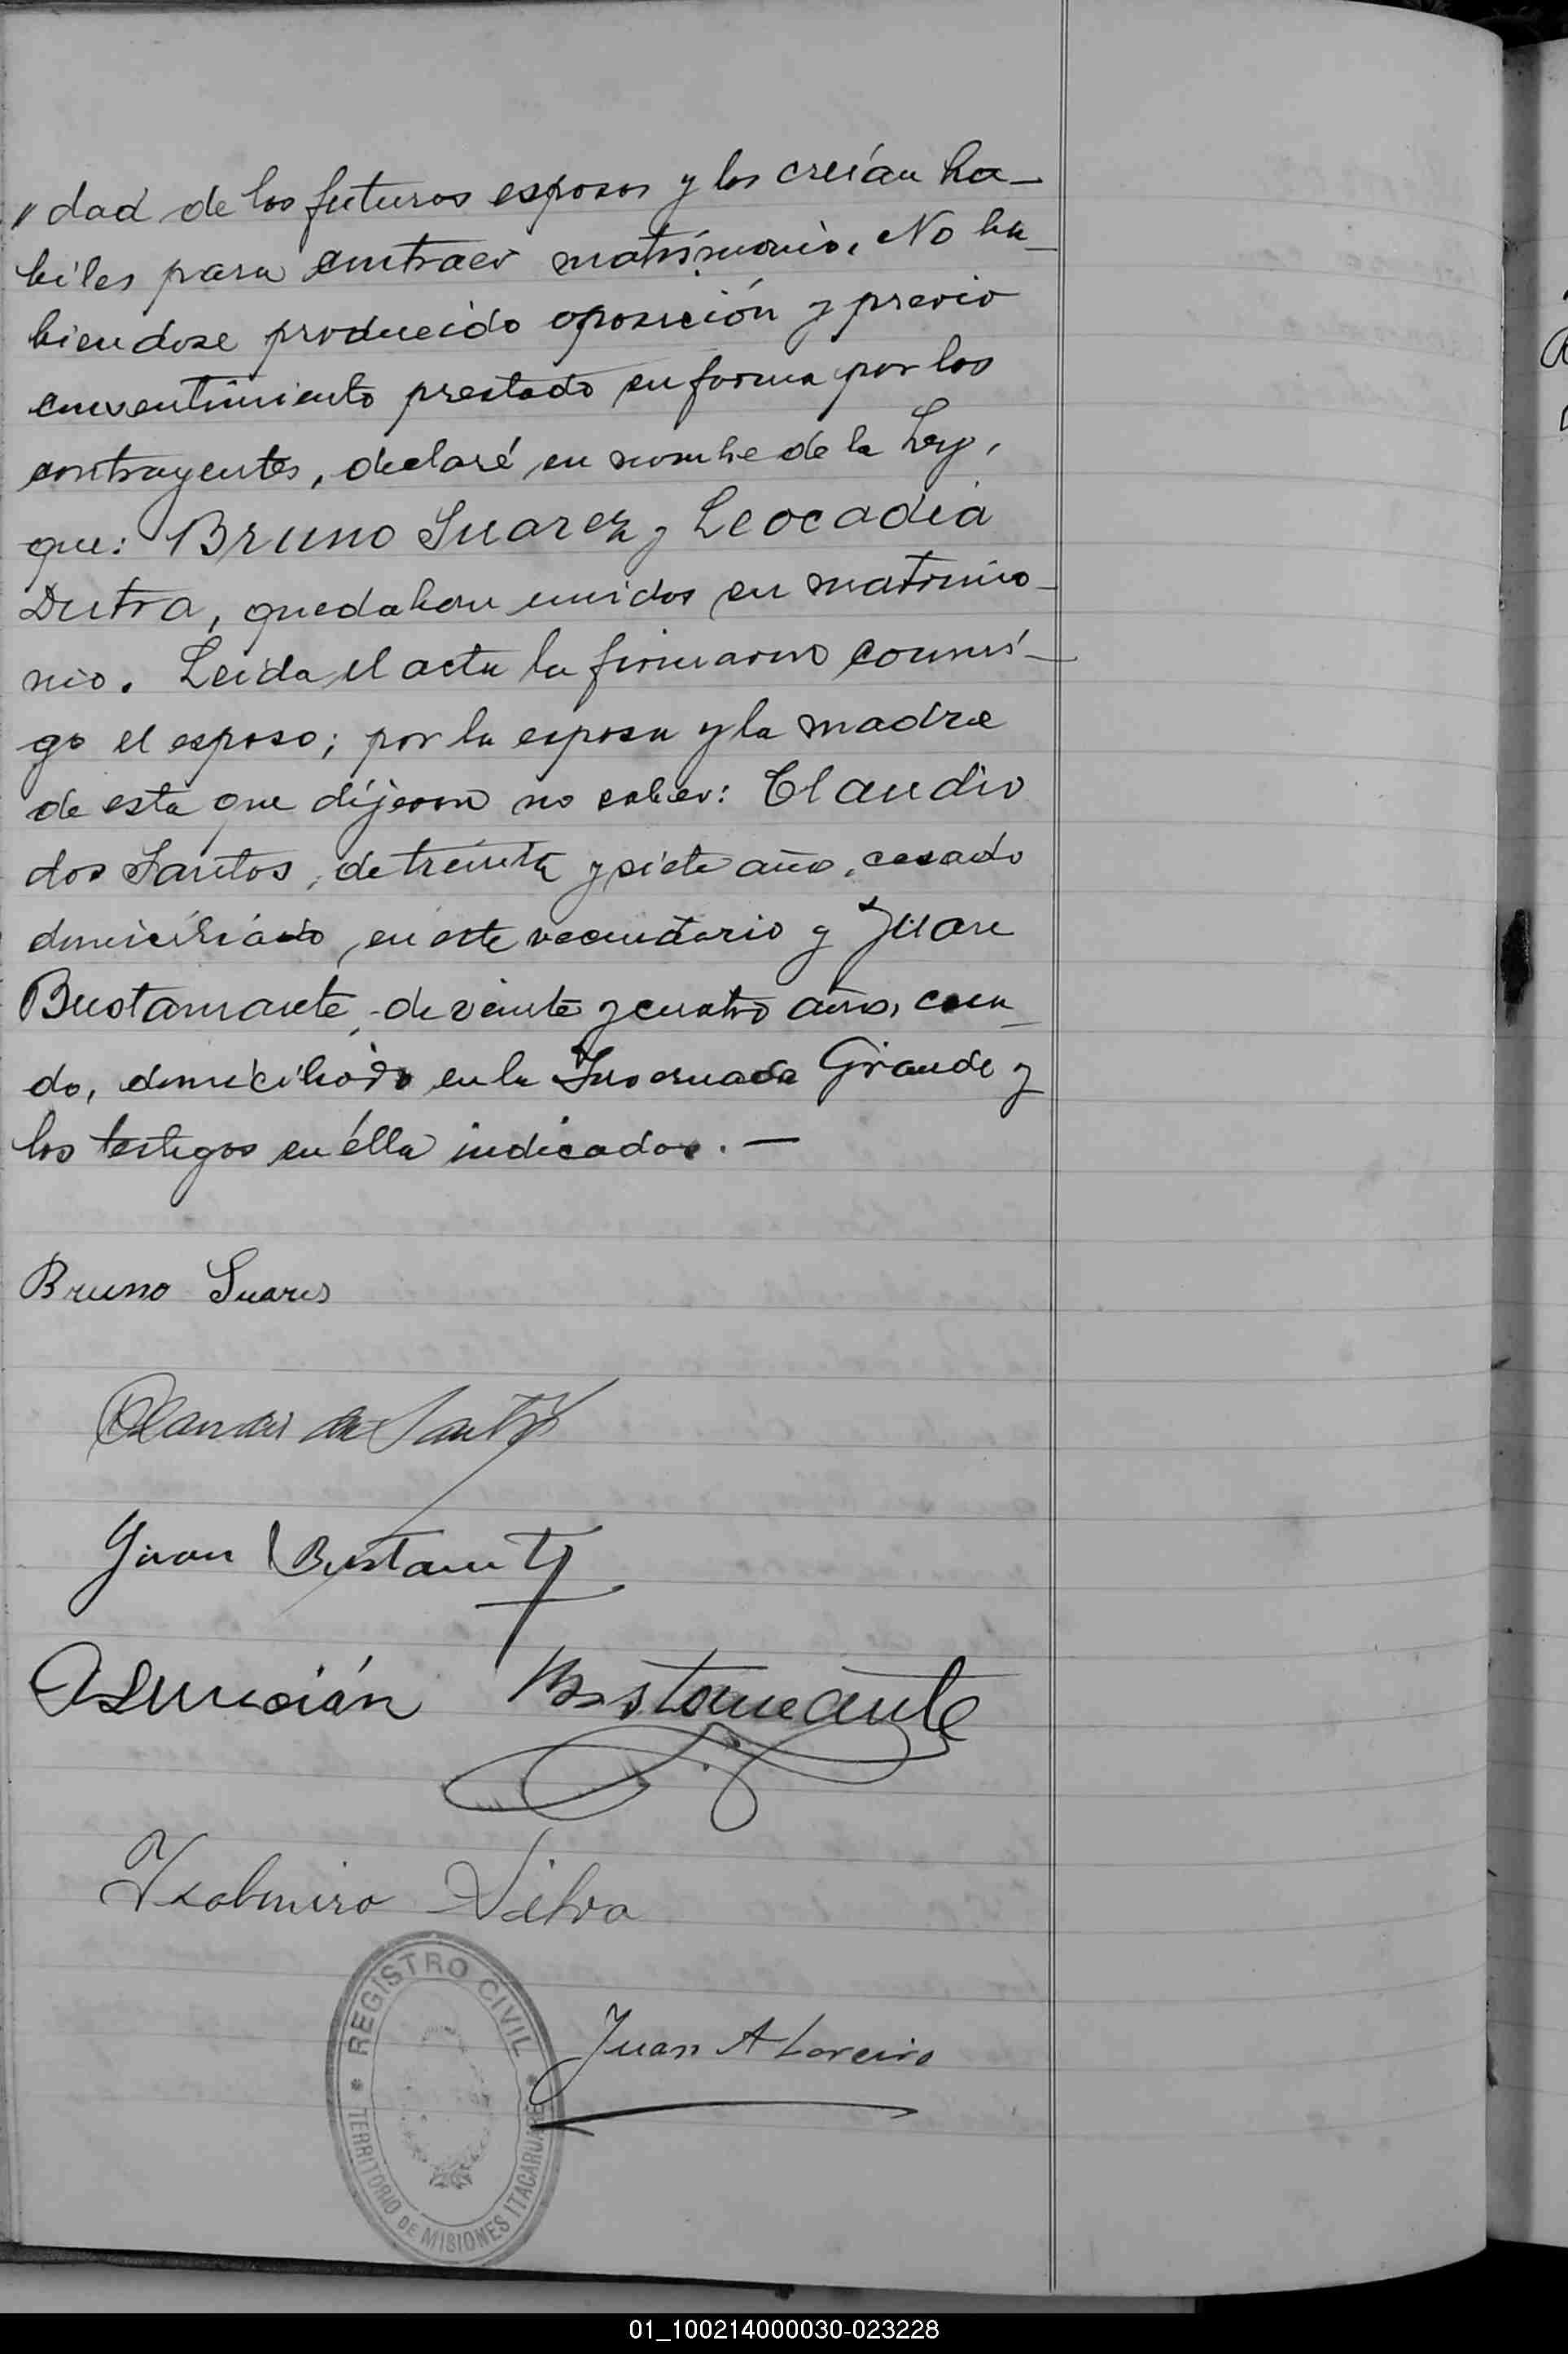 "dad de los futuros esposos y los creían ha-
biles para contraer matrimonio. No ha-
biendose producido oposición y previo
consentimiento prestado en forma por los
contrayentes, declaré en nombre de la Ley,
que: Bruno Suarez y Leocadia
Dutra, quedaban unidos en matrimo-
nio. Leida el acta la firmaron conmi-
go el esposo; por la esposa y la madre
de esta que dijeron no saber: Claudio
dos Santos, de treinta y siete años, casado
domiciliado en este vecindario y Juan
Bustamante, de veinte y cuatro años, casa-
do, domiciliado en la Invernada Grande y
los testigos en élla indicados. —
Bruno Suares
Juan Bustamte
Asunción Bustamante
Silva
Juan A Loreiro
REGISTRO CIVIL
TERRITORIO DE MISIONES ITACARUARE
01_100214000030-023228